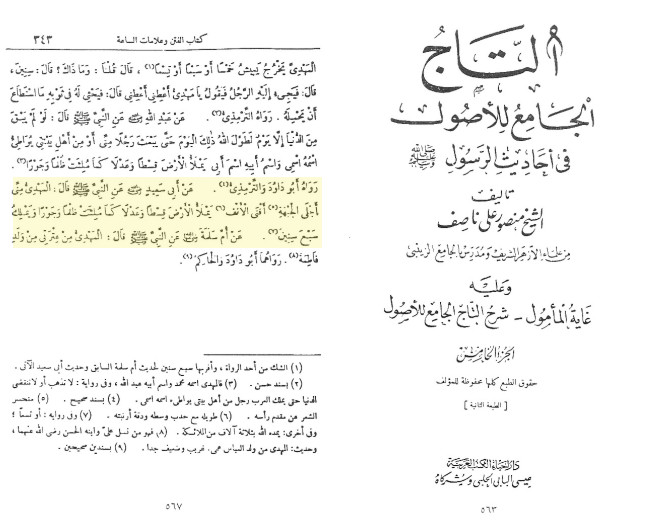 التاج
الجامع للأصول
في أحاديث الرسول ﷺ
تأليف
الشيخ منصور علي ناصف
من علماء الأزهر الشريف ومدرس بالجامع الزينبي
وعليه
غاية المأمول - شرح التاج الجامع للأصول
الجزء الخامس
حقوق الطبع كلها محفوظة للمؤلف
[ الطبعة الثانية ]
دار إحياء الكتب العربية
عيسى البابي الحلبي وشركاه
٥٦٣
كتاب الفتن وعلامات الساعة
٣٤٣
الْمَهْدِيَّ يَخْرُجُ يَعِيشُ خَمْسًا أَوْ سَبْعًا أَوْ تِسْعًا(١) ، قَالَ قُلْنَا : وَمَا ذَاكَ ؟ قَالَ : سِنِينَ ،
قَالَ : فَيَجِيءُ إِلَيْهِ الرَّجُلُ فَيَقُولُ يَا مَهْدِيُّ أَعْطِنِي أَعْطِنِي قَالَ : فَيَحْثِي لَهُ فِي ثَوْبِهِ مَا اسْتَطَاعَ
أَنْ يَحْمِلَهُ . رَوَاهُ التِّرْمِذِيُّ(٢) . عَنْ عَبْدِ اللهِ عَنِ النَّبِيِّ ﷺ قَالَ : لَوْ لَمْ يَبْقَ
مِنَ الدُّنْيَا إِلَّا يَوْمٌ لَطَوَّلَ اللهُ ذَلِكَ الْيَوْمَ حَتَّى يَبْعَثَ رَجُلًا مِنِّي أَوْ مِنْ أَهْلِ بَيْتِي يُوَاطِئُ
اسْمُهُ اسْمِي وَاسْمُ أَبِيهِ اسْمَ أَبِي يَمْلَأُ الْأَرْضَ قِسْطًا وَعَدْلًا كَمَا مُلِئَتْ ظُلْمًا وَجَوْرًا(٣) .
رَوَاهُ أَبُو دَاوُدَ وَالتِّرْمِذِيُّ(٤) . عَنْ أَبِي سَعِيدٍ عَنِ النَّبِيِّ ﷺ قَالَ : الْمَهْدِيُّ مِنِّي
أَجْلَى الْجَبْهَةِ(٥) أَقْنَى الْأَنْفِ(٦) يَمْلَأُ الْأَرْضَ قِسْطًا وَعَدْلًا كَمَا مُلِئَتْ ظُلْمًا وَجَوْرًا وَيَمْلِكُ
سَبْعَ سِنِينَ(٧) . عَنْ أُمِّ سَلَمَةَ عَنِ النَّبِيِّ ﷺ قَالَ : الْمَهْدِيُّ مِنْ عِتْرَتِي مِنْ وَلَدِ
فَاطِمَةَ(٨) . رَوَاهُمَا أَبُو دَاوُدَ وَالْحَاكِمُ(٩) .
(١) الشك من أحد الرواة ، وأقربها سبع سنين لحديث أم سلمة السابق وحديث أبي سعيد الآتي .
(٢) بسند حسن . (٣) فالمهدي اسمه محمد واسم أبيه عبد الله ، وفي رواية : لا تذهب أو لا تنقضي
الدنيا حتى يملك العرب رجل من أهل بيتي يواطئ اسمه اسمي . (٤) بسند صحيح . (٥) منحسر
الشعر عن مقدم رأسه . (٦) طويله مع حدب وسطه ودقة أرنبته . (٧) وفي رواية : أو تسعًا ؛
وفي أخرى : يمده الله بثلاثة آلاف من الملائكة . (٨) فهو من نسل علي وابنه الحسن رضي الله عنهما ،
وحديث : المهدي من ولد العباس عمي . غريب وضعيف جدا . (٩) بسندين صحيحين .
٥٦٧